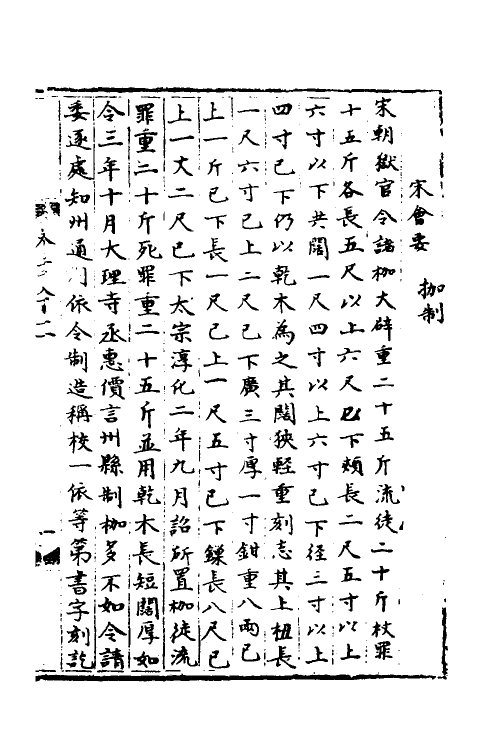 宋會要
枷制
宋朝獄官令諸枷大辟重二十五斤流徒二十斤杖罪
十五斤各長五尺以上六尺已下頰長二尺五寸以上
六寸以下共闊一尺四寸以上六寸已下徑三寸以上
四寸已下仍以乾木為之其闊狹輕重刻志其上杻長
一尺六寸已上二尺已下廣三寸厚一寸鉗重八兩已
上一斤已下長一尺已上一尺五寸已下鏁長八尺已
上一丈二尺已下太宗淳化二年九月詔所置枷徒流
罪重二十斤死罪重二十五斤並用乾木長短闊厚如
令三年十月大理寺丞惠價言州縣制枷多不如令請
委逐處知州通判依令制造稱校一依等第書字刻訖
一